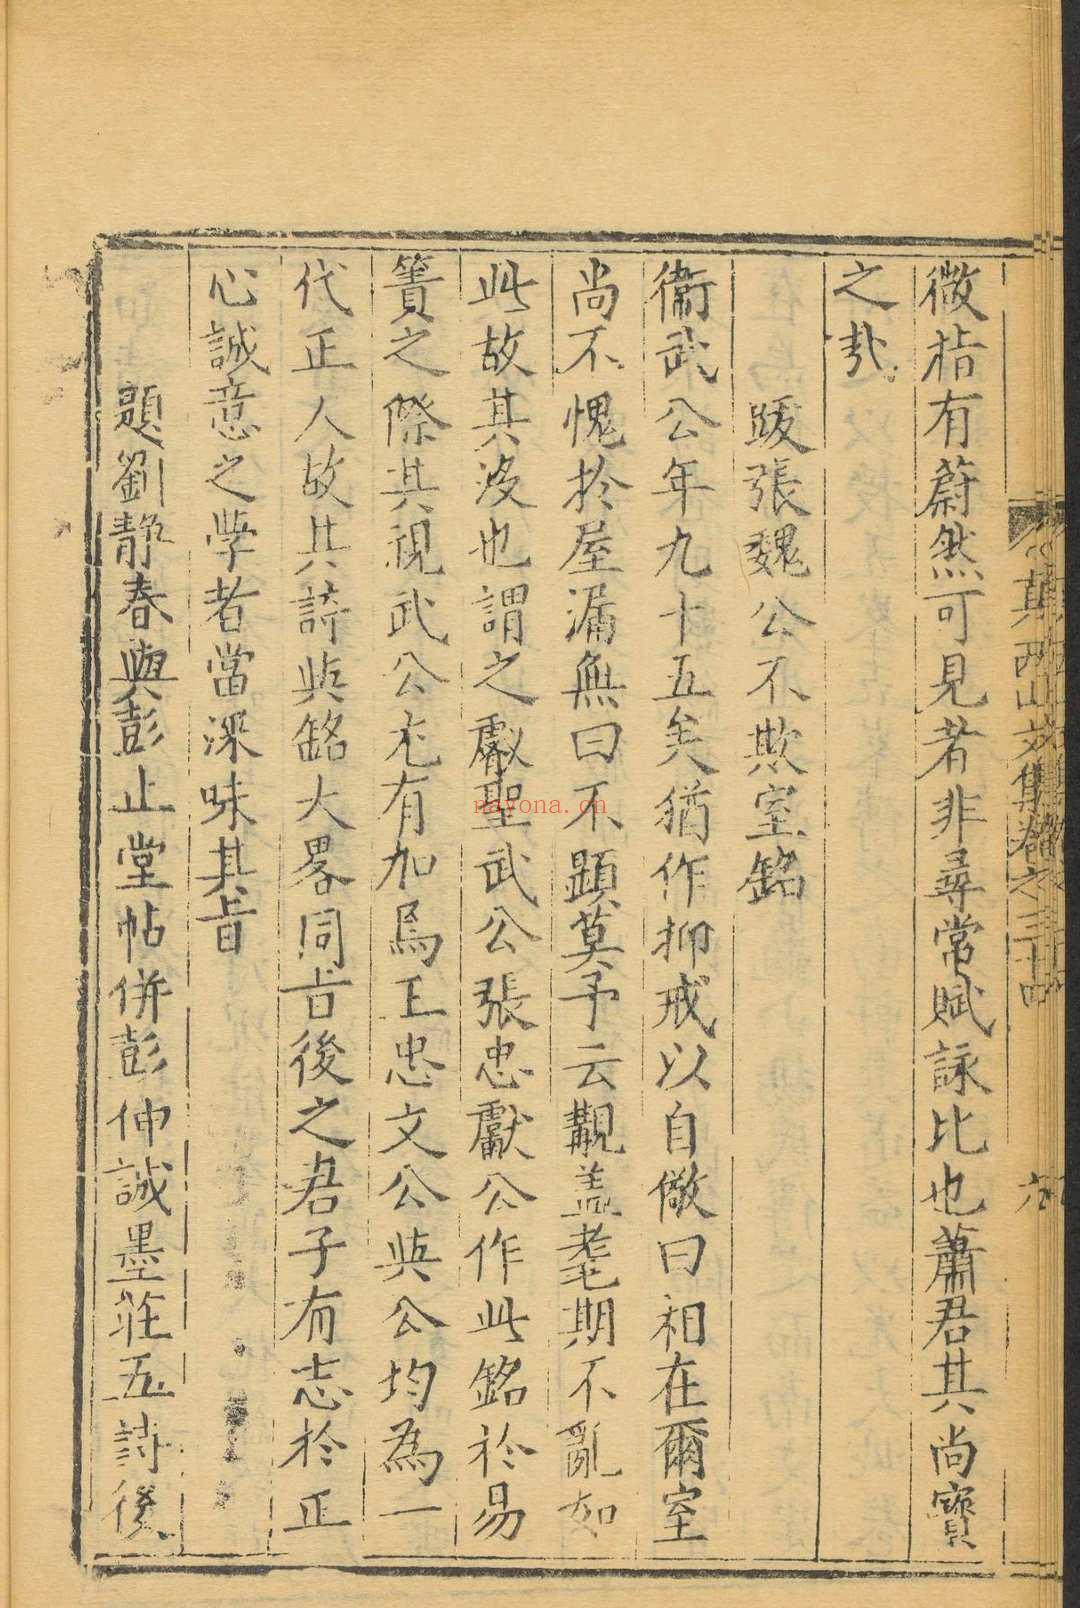 微指有蔚然可見者非尋常賦詠比也蕭君其尚寶
之哉
跋張魏公不欺室銘
衞武公年九十五矣猶作抑戒以自儆曰相在爾室
尚不愧於屋漏無曰不顯莫予云覯盖耄期不亂如
此故其没也謂之叡聖武公張忠獻公作此銘於易
簀之際其視武公尤有加焉王忠文公與公均為一
代正人故其詩與銘大畧同旨後之君子有志於正
心誠意之學者當深味其旨
題劉静春與彭止堂帖併彭仲誠墨莊五詩後
真西山文集卷之三十四
nayona.cn